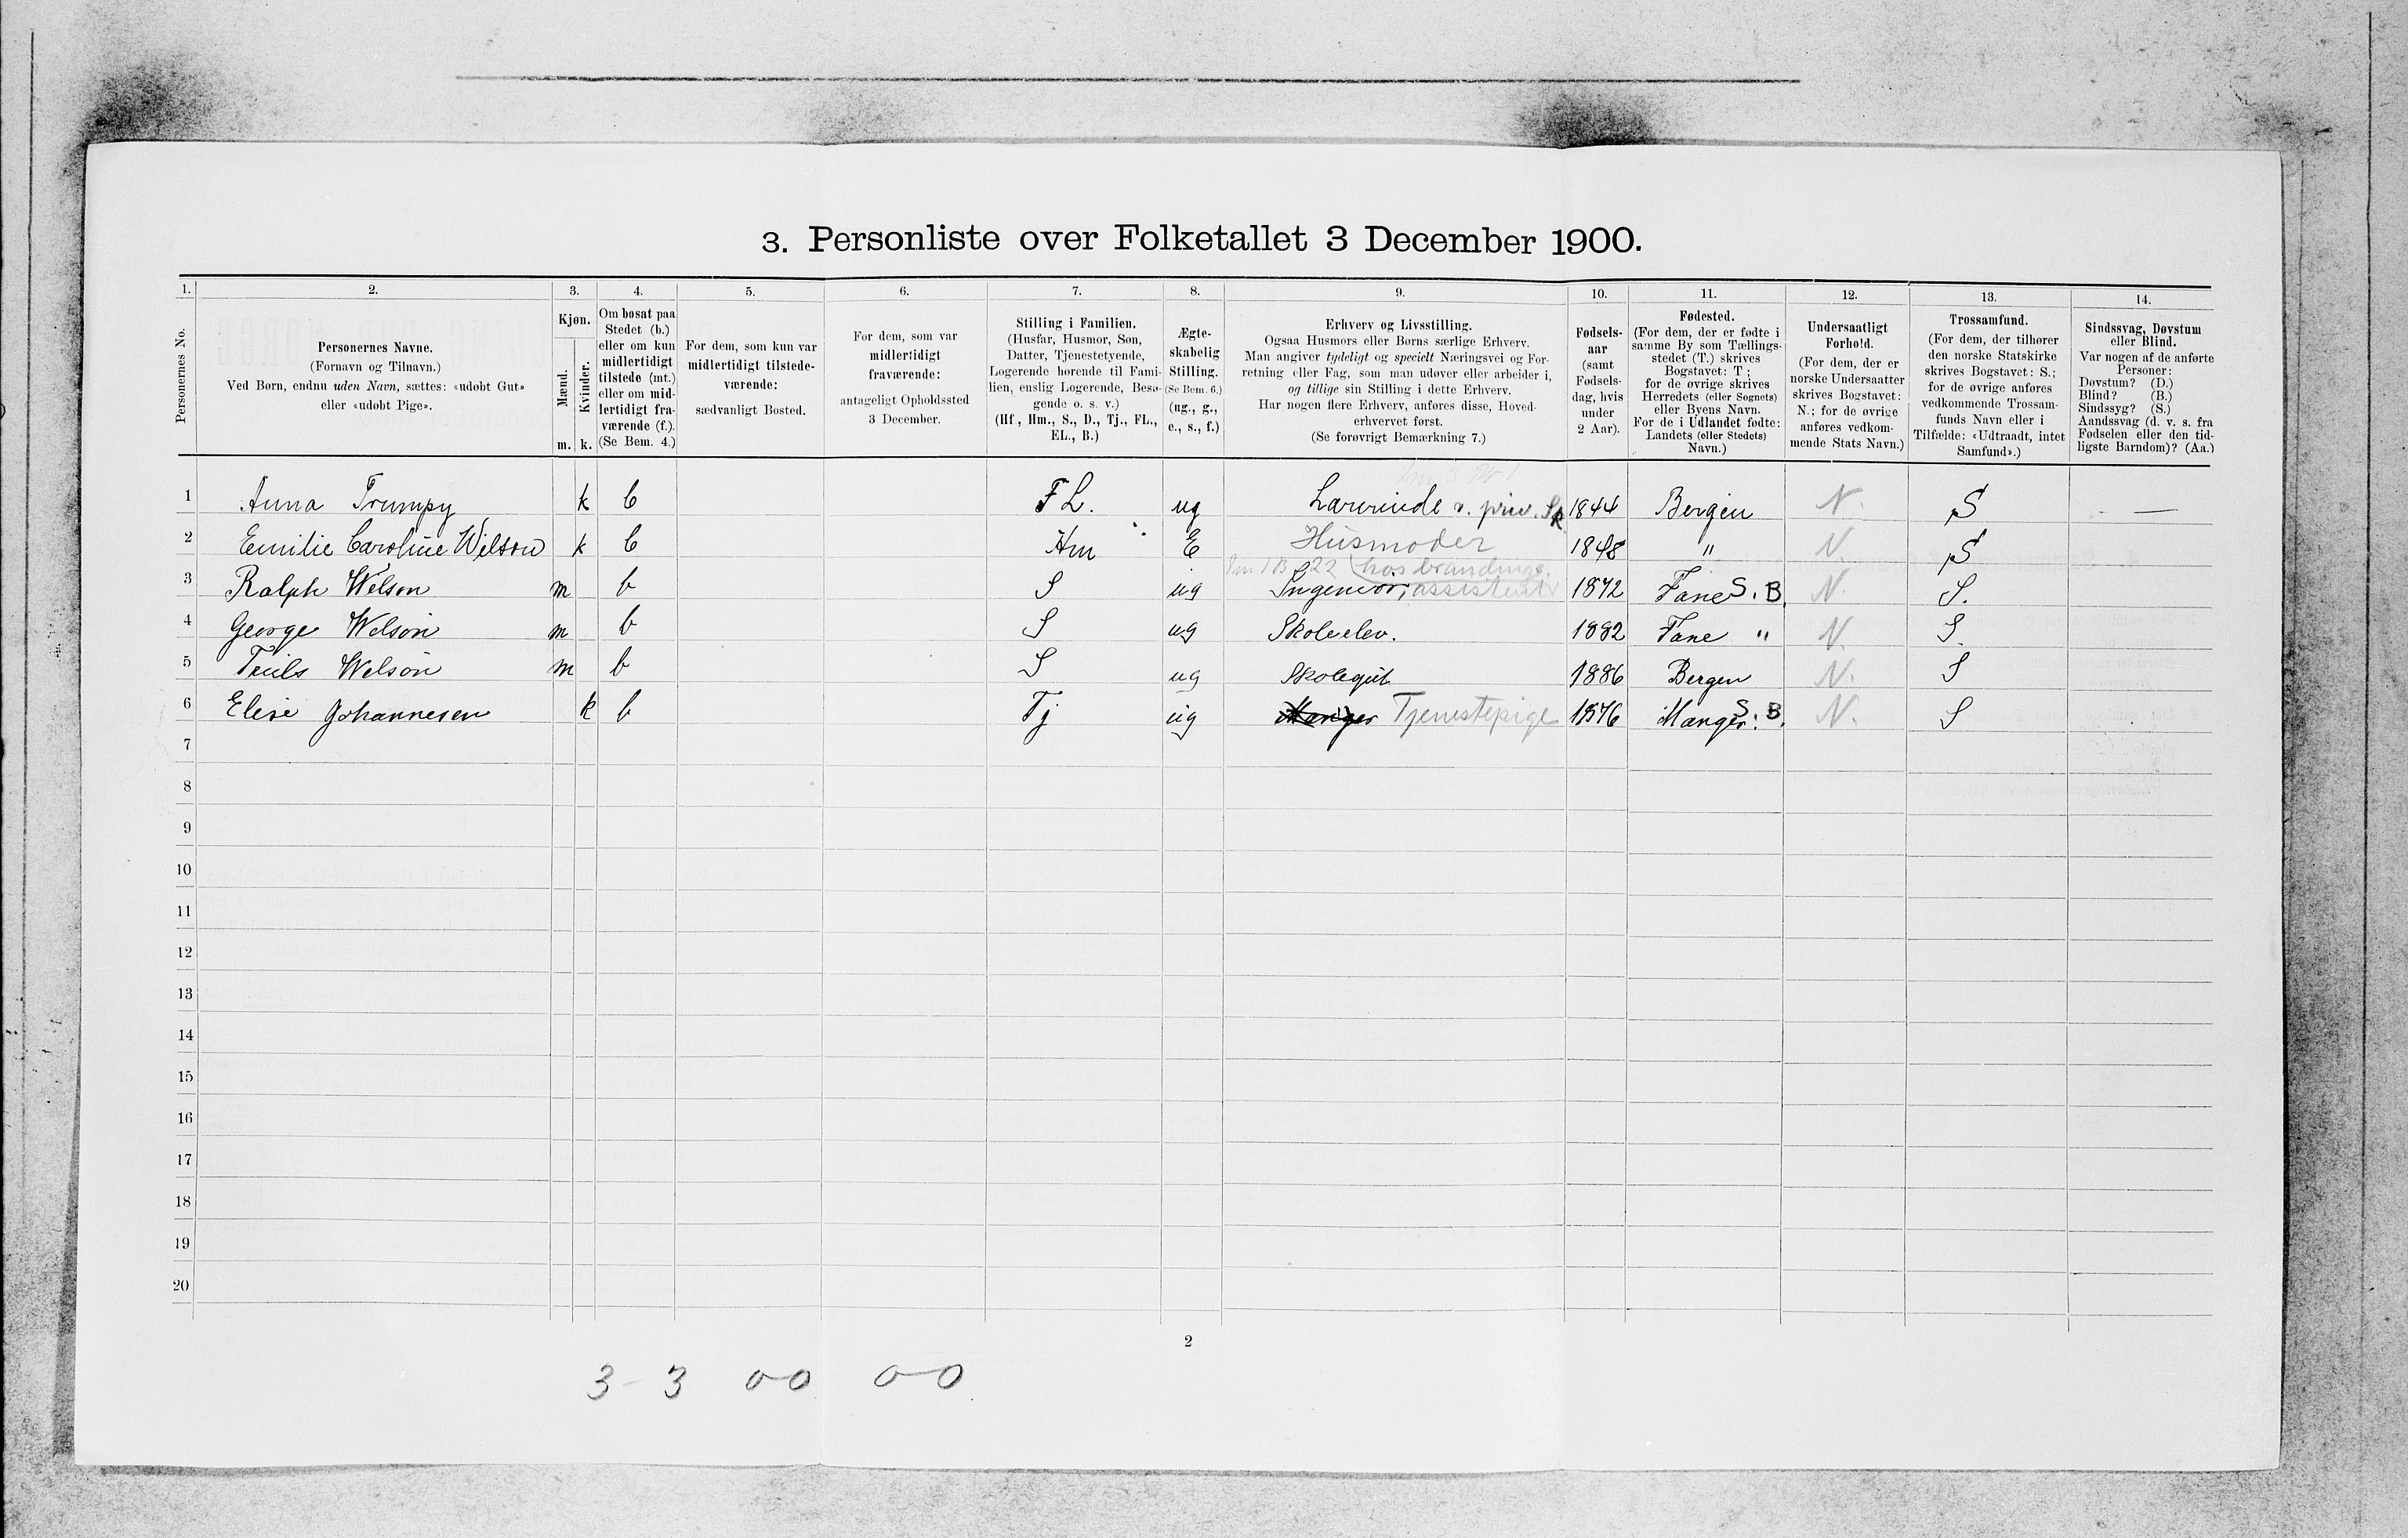 3. Personliste over Folketallet 3 December 1900.
1. 2. 3. 4. 5. 6. 7. 8. 9. 10. 11. 12. 13. 14.
Personernes No.
Personernes Navne.
(Fornavn og Tilnavn.)
Ved Børn, endnu uden Navn, sættes: «udøbt Gut»
eller «udøbt Pige».
Kjøn.
Mænd.
Kvinder.
m. k.
Om bosat paa
Stedet (b.)
eller om kun
midlertidigt
tilstede (mt.)
eller om mid-
lertidigt fra-
værende (f.).
(Se Bem. 4.)
For dem, som kun var
midlertidigt tilstede-
værende:
sædvanligt Bosted.
For dem, som var
midlertidigt
fraværende:
antageligt Opholdssted
3 December.
Stilling i Familien.
(Husfar, Husmor, Søn,
Datter, Tjenestetyende,
Logerende hørende til Fami-
lien, enslig Logerende, Besø-
gende o. s. v.)
(Hf., Hm., S., D., Tj., FL.,
EL., B.)
Ægte-
skabelig
Stilling.
(Se Bem. 6.)
(ug., g.,
e., s., f.)
Erhverv og Livsstilling.
Ogsaa Husmors eller Børns særlige Erhverv.
Man angiver tydeligt og specielt Næringsvei og For-
retning eller Fag, som man udøver eller arbeider i,
og tillige sin Stilling i dette Erhverv.
Har nogen flere Erhverv, anføres disse, Hoved-
erhvervet først.
(Se forøvrigt Bemærkning 7.)
Fødsels-
aar
(samt
Fødsels-
dag, hvis
under
2 Aar).
Fødested.
(For dem, der er fødte i
samme By som Tællings-
stedet (T.) skrives
Bogstavet: T;
for de øvrige skrives
Herredets (eller Sognets)
eller Byens Navn.
For de i Udlandet fødte:
Landets (eller Stedets)
Navn.)
Undersaatligt
Forhold.
(For dem, der er
norske Undersaatter
skrives Bogstavet:
N.; for de øvrige
anføres vedkom-
mende Stats Navn.)
Trossamfund.
(For dem, der tilhører
den norske Statskirke
skrives Bogstavet: S.;
for de øvrige anføres
vedkommende Trossam-
funds Navn eller i
Tilfælde: «Udtraadt, intet
Samfund».)
Sindssvag, Døvstum
eller Blind.
Var nogen af de anførte
Personer:
Døvstum? (D.)
Blind? (B.)
Sindssyg? (S.)
Aandssvag (d. v. s. fra
Fødselen eller den tid-
ligste Barndom)? (Aa.)
1 Anna Trumpy k b FL. ug Lærerinde v. priv. Sk 1844 Bergen N. S —
2 Emilie Caroline Wilson k b Hm E Husmoder 1848 " N S
hos brandinge.
3 Ralph Welson m b S ug Ingeniør, assistent 1872 Fane S. B. N. S.
4 George Welson m b S ug Skoleelev. 1882 Fane " N. S.
5 Truls Welson m b S ug Skolegut 1886 Bergen N. S
6 Elise Johannesen k b Tj ug Manger Tjenestepige 1876 Manger S. B. N. S
7
8
9
10
11
12
13
14
15
16
17
18
19
20
2
3 - 3 0-0 0-0